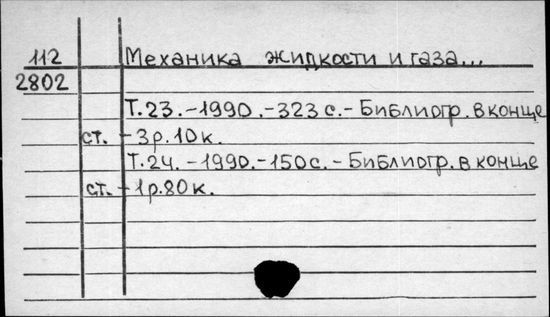 112 Механика жидкости и газа...
2802
Т.23.-1990.-323 с.- Библиогр. в конце
ст. - 3р. 10 к.
Т.24.-1990.-150 с.- Библиогр. в конце
ст. - 1р. 80 к.